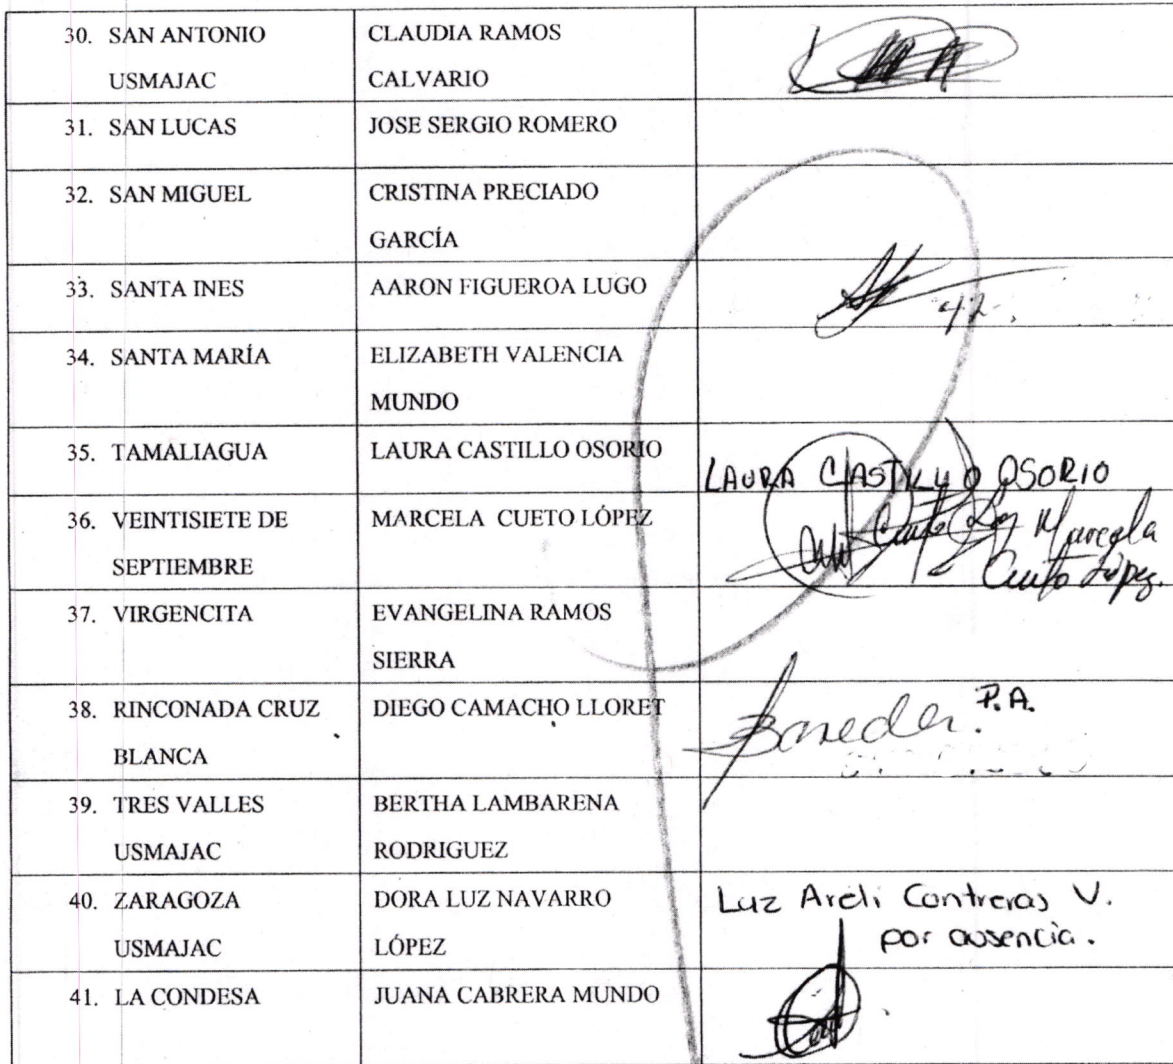 30. SAN ANTONIO USMAJAC CLAUDIA RAMOS CALVARIO
31. SAN LUCAS JOSE SERGIO ROMERO
32. SAN MIGUEL CRISTINA PRECIADO GARCÍA
33. SANTA INES AARON FIGUEROA LUGO
34. SANTA MARÍA ELIZABETH VALENCIA MUNDO
35. TAMALIAGUA LAURA CASTILLO OSORIO LAURA CASTILLO OSORIO
36. VEINTISIETE DE SEPTIEMBRE MARCELA CUETO LÓPEZ Marcela Cueto López.
37. VIRGENCITA EVANGELINA RAMOS SIERRA
38. RINCONADA CRUZ BLANCA DIEGO CAMACHO LLORET P.A.
39. TRES VALLES USMAJAC BERTHA LAMBARENA RODRIGUEZ
40. ZARAGOZA USMAJAC DORA LUZ NAVARRO LÓPEZ Luz Areli Contreras V. por ausencia.
41. LA CONDESA JUANA CABRERA MUNDO